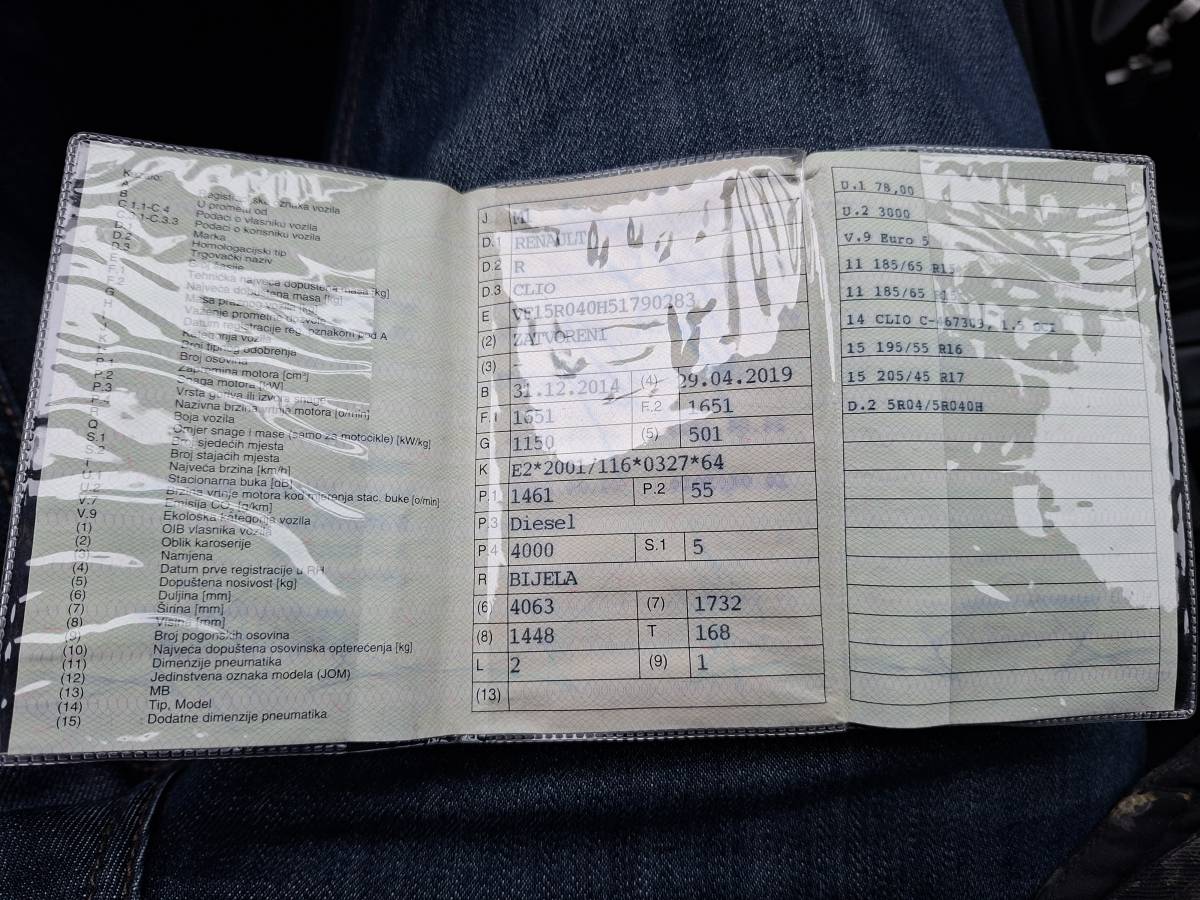 A
B
C.1.1-C.4
D.2
D.3
U prometu od
Podaci o vlasniku vozila
Podaci o korisniku vozila
Marka
Homologacijski tip
Trgovački naziv
Tehnička najveća dopuštena masa [kg]
Najveća dopuštena masa [kg]
Važenje prometne dozvole
Datum registracije reg. oznakom pod A
Broj tipnog odobrenja
Broj osovina
Zapremina motora [cm³]
P.2 Snaga motora [kW]
P.3 Vrsta goriva ili izvora snage
Nazivna brzina vrtnje motora [o/min]
R Boja vozila
Q Omjer snage i mase (samo za motocikle) [kW/kg]
S.1 Broj sjedećih mjesta
S.2 Broj stajaćih mjesta
Najveća brzina [km/h]
Stacionarna buka [dB]
Brzina vrtnje motora kod mjerenja stac. buke [o/min]
V.7 Emisija CO₂ [g/km]
V.9 Ekološka kategorija vozila
(1) OIB vlasnika vozila
(2) Oblik karoserije
(3) Namjena
(4) Datum prve registracije u RH
(5) Dopuštena nosivost [kg]
(6) Duljina [mm]
(7) Širina [mm]
(8) Visina [mm]
(9) Broj pogonskih osovina
(10) Najveća dopuštena osovinska opterećenja [kg]
(11) Dimenzije pneumatika
(12) Jedinstvena oznaka modela (JOM)
(13) MB
(14) Tip, Model
(15) Dodatne dimenzije pneumatika
J M1
D.1 RENAULT
D.2 R
D.3 CLIO
E VF15R040H51790283
(2) ZATVORENI
(3) -
B 31.12.2014 (4) 29.04.2019
F.1 1651 F.2 1651
G 1150 (5) 501
K E2*2001/116*0327*64
P.1 1461 P.2 55
P.3 Diesel
P.4 4000 S.1 5
R BIJELA
(6) 4063 (7) 1732
(8) 1448 T 168
L 2 (9) 1
(13)
U.1 78,00
U.2 3000
V.9 Euro 5
11 185/65 R15
11 185/65 R15
14 CLIO C- 1.5
15 195/55 R16
15 205/45 R17
D.2 5R04/5R040H